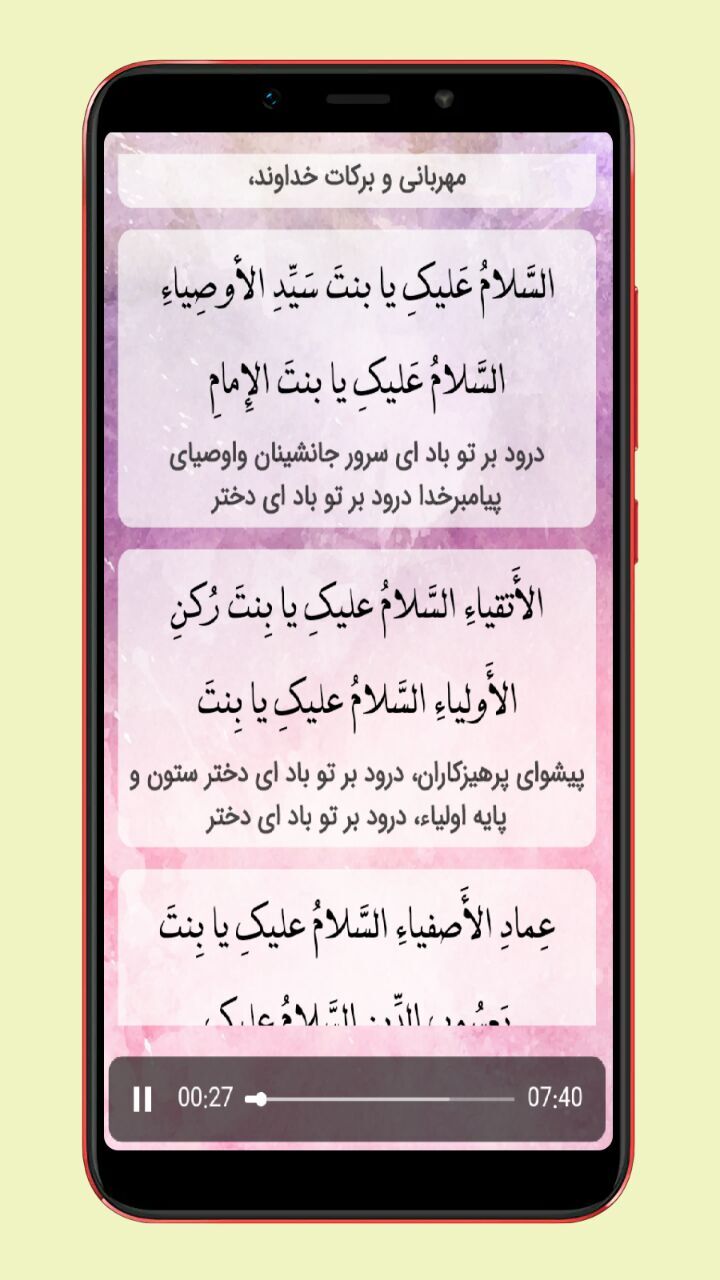 مهربانی و برکات خداوند،
السَّلامُ عَلیکِ یا بنتَ سَیِّدِ الأوصِیاءِ
السَّلامُ عَلیکِ یا بنتَ الإِمامِ
درود بر تو باد ای سرور جانشینان واوصیای
پیامبرخدا درود بر تو باد ای دختر
الأَتقیاءِ السَّلامُ علیکِ یا بِنتَ رُکنِ
الأَولیاءِ السَّلامُ علیکِ یا بِنتَ
پیشوای پرهیزکاران، درود بر تو باد ای دختر ستون و
پایه اولیاء، درود بر تو باد ای دختر
عِمادِ الأَصفیاءِ السَّلامُ علیکِ یا بِنتَ
00:27 07:40